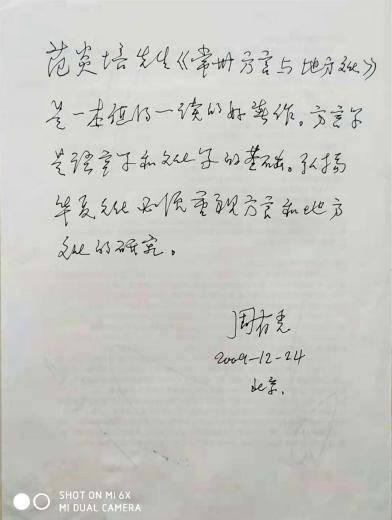 范炎培先生《常州方言与地方文化》
是一本值得一读的好著作。方言学
是语言学和文化学的基础。弘扬
华夏文化必须重视方言和地方
文化的研究。
周有光
2009-12-24
北京.
SHOT ON MI 6X
MI DUAL CAMERA